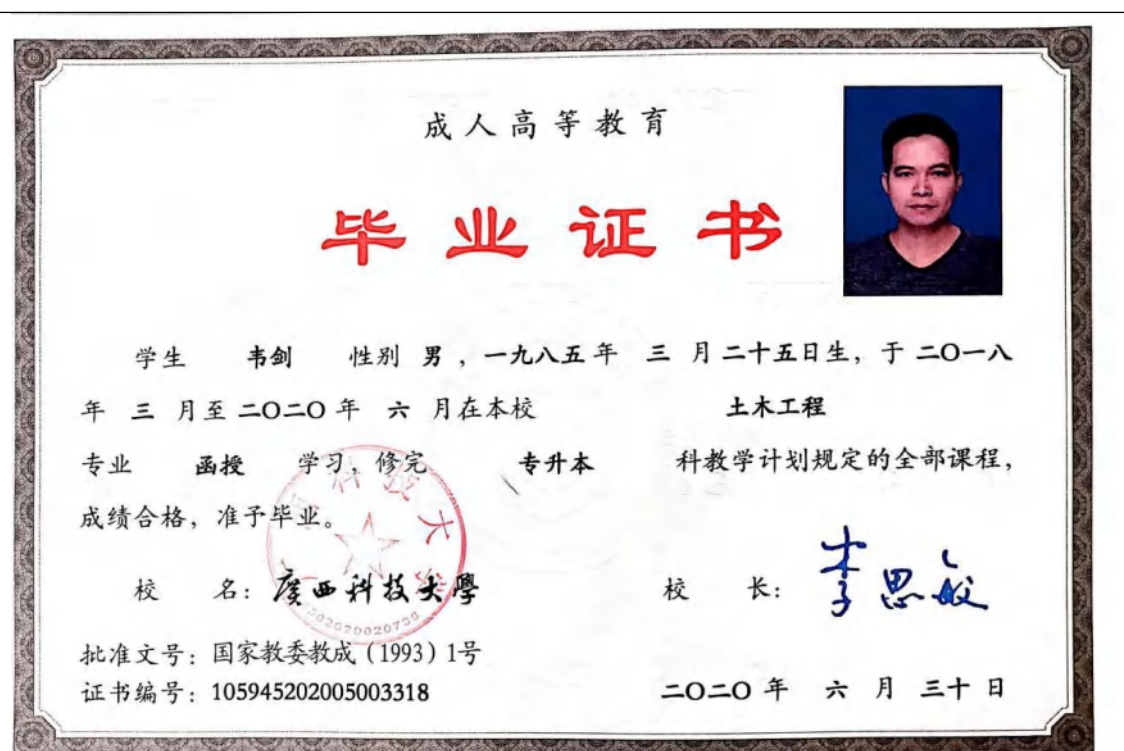 成人高等教育
毕业证书
学生 韦剑 性别 男，一九八五年 三 月二十五日生，于二〇一八
年 三 月至二〇二〇年 六 月在本校 土木工程
专业 函授 学习，修完 专升本 科教学计划规定的全部课程，
成绩合格，准予毕业。
校 名：广西科技大學
校 长：李思敏
批准文号：国家教委教成（1993）1号
证书编号：105945202005003318
二〇二〇年 六 月 三十 日